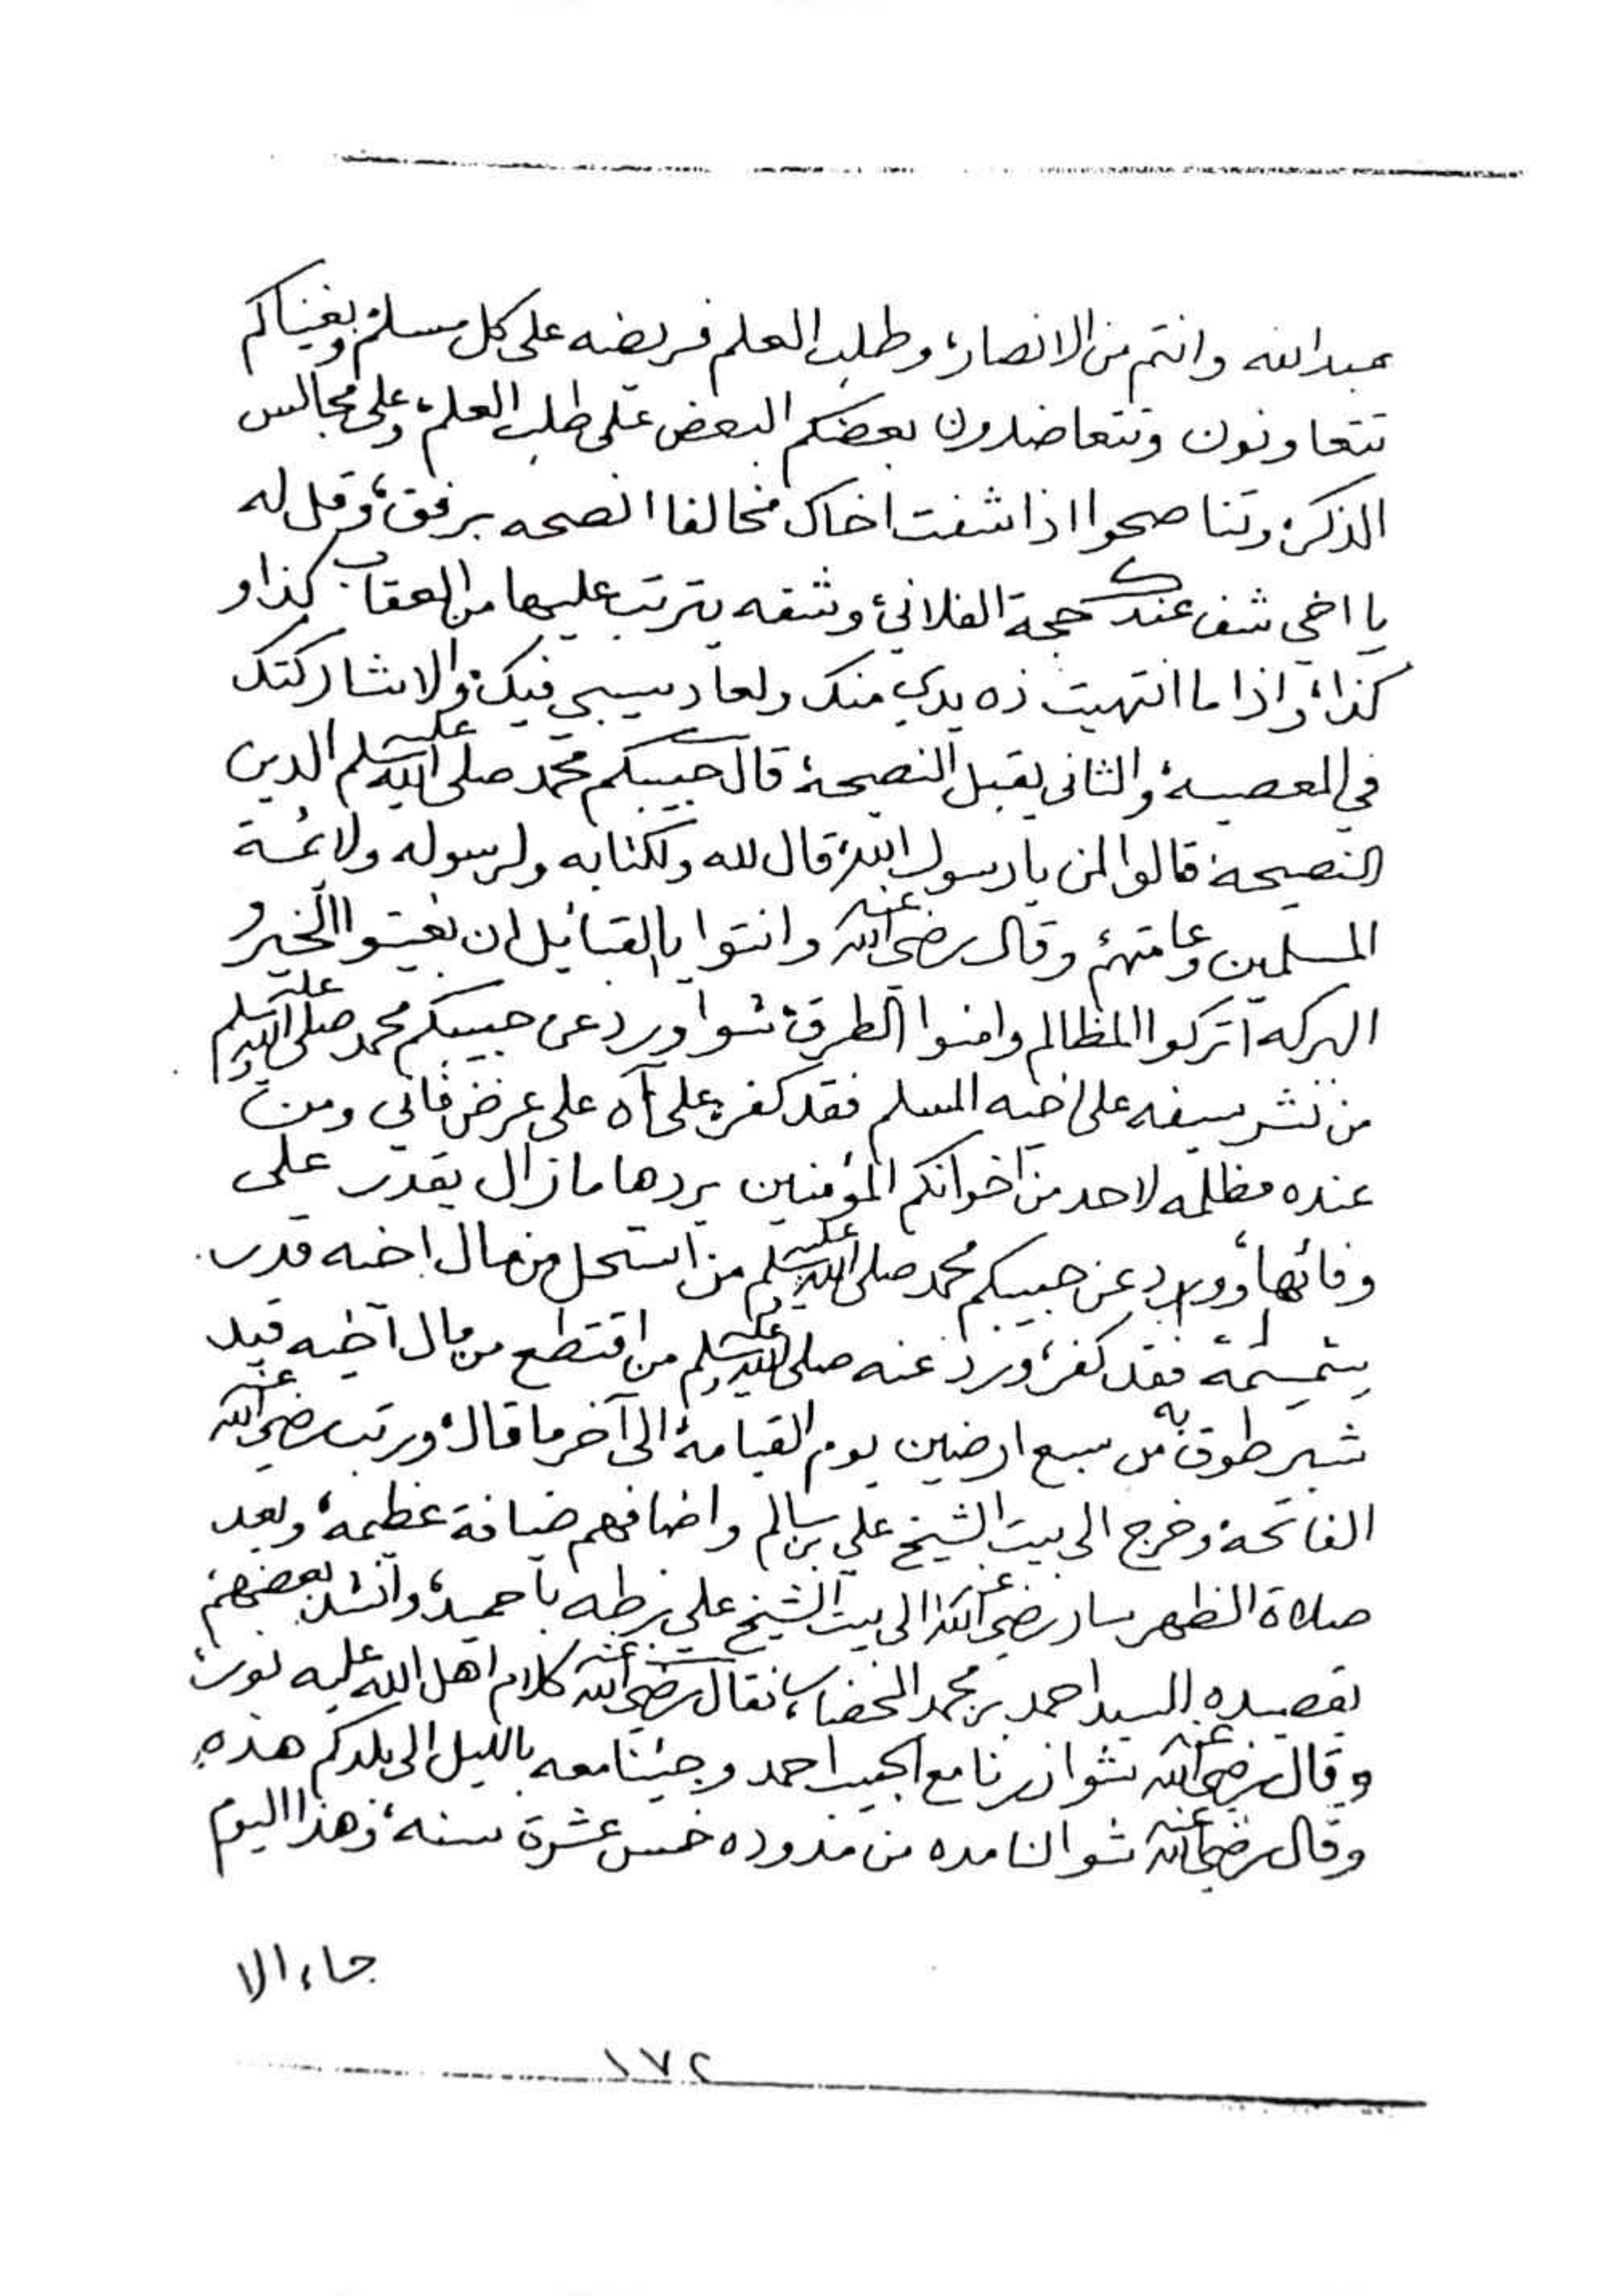 عبد الله وانتم من الانصار، وطلب العلم فريضه على كل مسلم، وبغيناكم
تتعاونون وتتعاضدون بعضكم البعض على طلب العلم، وعلى مجالس
الذكر، وتناصحوا اذا شفت اخاك مخالفا انصحه برفق، وقل له
يا اخي شف عندك حجة الفلاني، وشفه يترتب عليها من العقاب كذا و
كذا، واذا ما انتهيت ذه يدي منك ولعاد سيبي فيك، والا شاركتك
في المعصية، والثاني يقبل النصيحة، قال حبيبكم محمد صلى الله عليه وسلم الدين
النصيحة، قالوا لمن يا رسول الله، قال لله ولكتابه ولرسوله ولائمة
المسلمين وعامتهم، وقال رضي الله عنه وانتوا يا القبائل ان بغيتوا الخير و
البركه اتركوا المظالم وامنوا الطرق، شوا ورد عن حبيبكم محمد صلى الله عليه وسلم
من نشر سيفه على اخيه المسلم فقد كفر، على آه على عرض فاني ومن
عنده مظلمه لاحد من اخوانكم المؤمنين يردها ما زال يقدر على
وفائها، وورد عن حبيبكم محمد صلى الله عليه وسلم من استحل من مال اخيه قدر
فقد كفر، ورد عنه صلى الله عليه وسلم من اقتطع من مال اخيه قيد
شبر طوق به من سبع ارضين يوم القيامة، الى آخر ما قال، ورتب رضي الله عنه
الفاتحة، وخرج الى بيت الشيخ علي بن سالم واضافهم ضيافة عظيمه، وبعد
صلاة الظهر سار رضي الله عنه الى بيت الشيخ علي بن طه باحميد، وانشد بعضهم
بقصيده السيد احمد بن محمد المحضار، فقال رضي الله عنه كلام اهل الله عليه نور،
وقال رضي الله عنه شوا زرنا مع الحبيب احمد وجينا معه بالليل الى بلدكم هذه
وقال رضي الله عنه شوا لنا مده من مدوده خمس عشرة سنه، وهذا اليوم
جاء الا
١٧٢